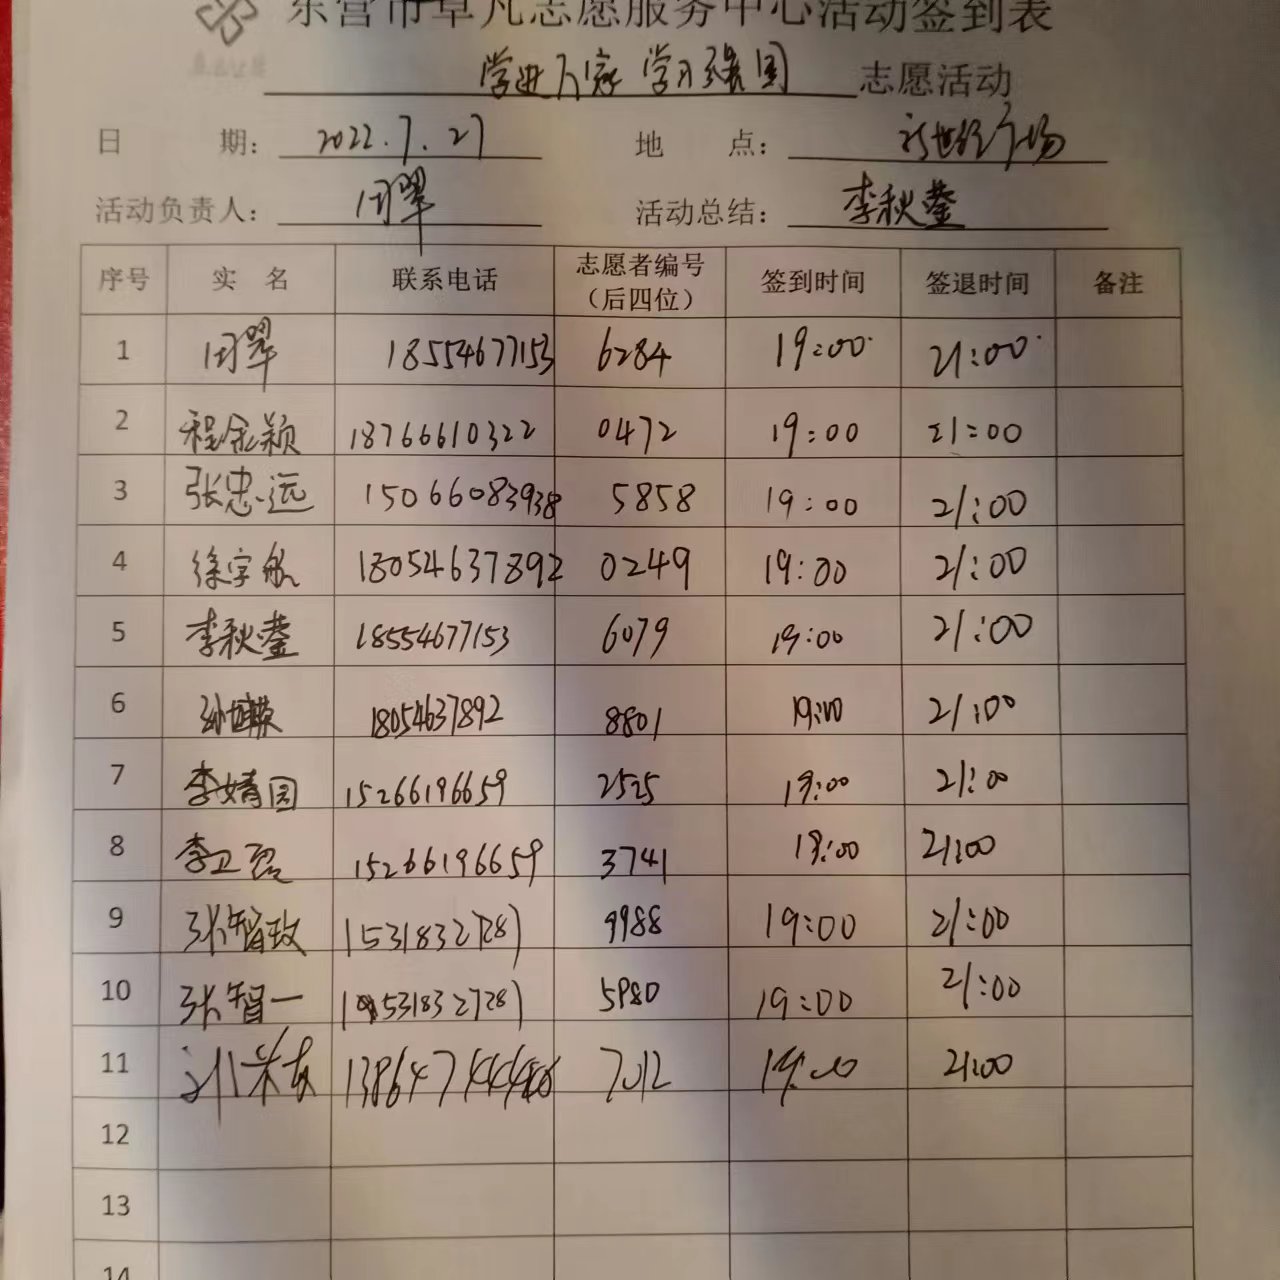 东营市卓凡志愿服务中心活动签到表
学进万家 学习强国 志愿活动
日 期: 2022.7.27 地 点: 新世纪广场
活动负责人: 田翠 活动总结: 李秋蓥
序号 实 名 联系电话 志愿者编号(后四位) 签到时间 签退时间 备注
1 田翠 18554677153 6284 19:00 21:00
2 程金颖 18766610322 0472 19:00 21:00
3 张忠远 15066083938 5858 19:00 21:00
4 徐宇航 18054637892 0249 19:00 21:00
5 李秋蓥 18554677153 6079 19:00 21:00
6 18054637892 8801 19:00 21:00
7 李婧园 15266196659 2525 19:00 21:00
8 李卫 15266196659 3741 19:00 21:00
9 张智玫 15318327281 9988 19:00 21:00
10 张智一 15318327281 5980 19:00 21:00
11 7012 19:00 21:00
12
13
14